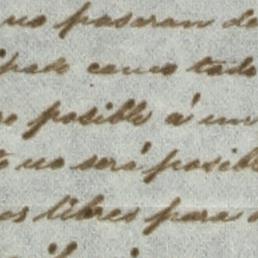 no pasaran de
ipado como todo
o posible á un
o no será posible
os libres para